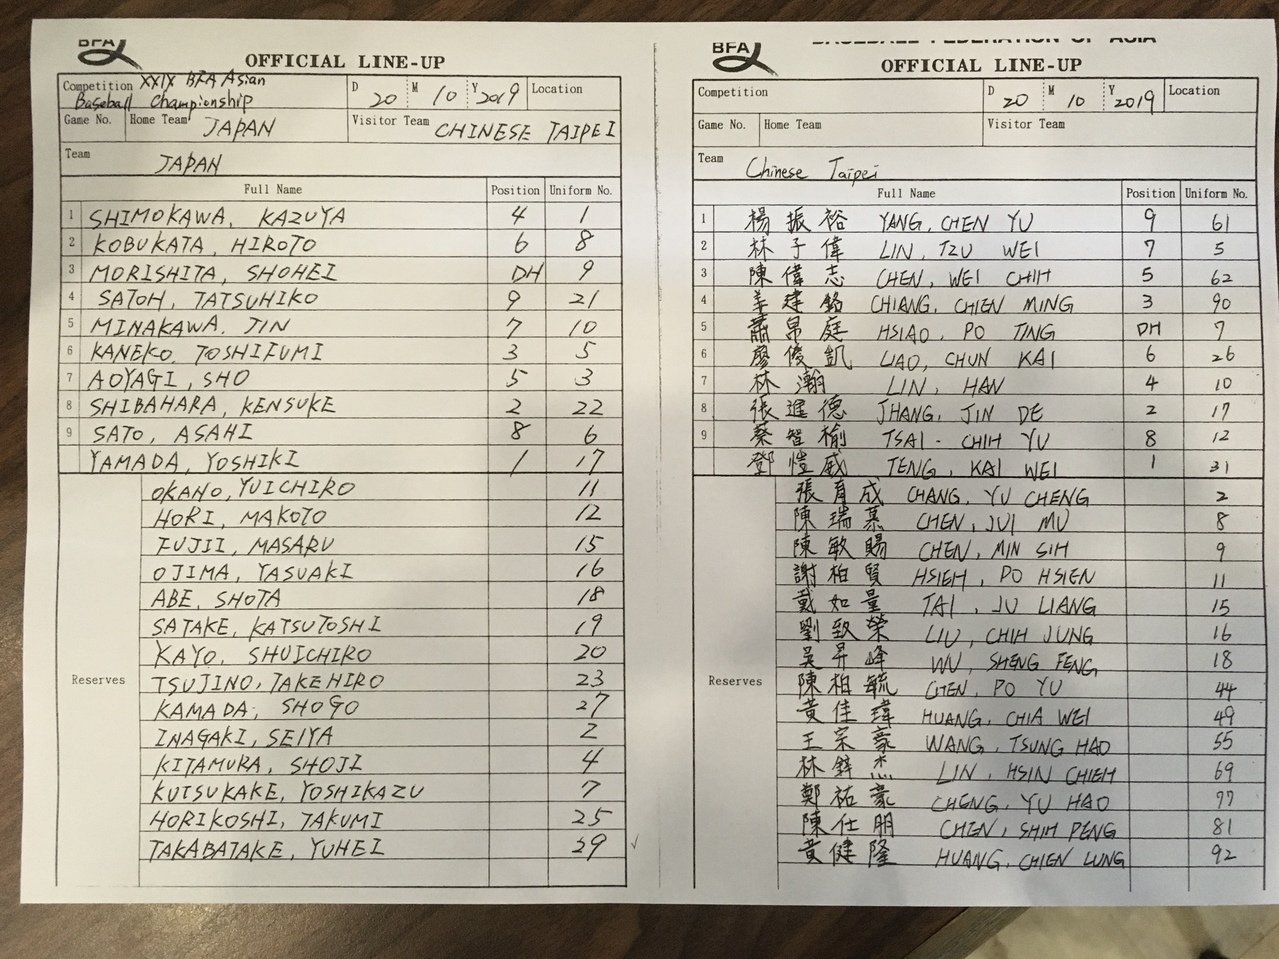 BFA
OFFICIAL LINE-UP
Competition XXIX BFA Asian
Baseball Championship
D 20 M 10 Y 2019 Location
Game No. Home Team JAPAN Visitor Team CHINESE TAIPEI
Team JAPAN
Full Name Position Uniform No.
1 SHIMOKAWA, KAZUYA 4 1
2 KOBUKATA, HIROTO 6 8
3 MORISHITA, SHOHEI DH 9
4 SATOH, TATSUHIKO 9 21
5 MINAKAWA, JIN 7 10
6 KANEKO, TOSHIFUMI 3 5
7 AOYAGI, SHO 5 3
8 SHIBAHARA, KENSUKE 2 22
9 SATO, ASAHI 8 6
YAMADA, YOSHIKI 1 17
Reserves
OKANO, YUICHIRO 11
HORI, MAKOTO 12
FUJII, MASARU 15
OJIMA, YASUAKI 16
ABE, SHOTA 18
SATAKE, KATSUTOSHI 19
KAYO, SHUICHIRO 20
TSUJINO, TAKEHIRO 23
KAMADA, SHOGO 27
INAGAKI, SEIYA 2
KITAMURA, SHOJI 4
KUTSUKAKE, YOSHIKAZU 7
HORIKOSHI, TAKUMI 25
TAKABATAKE, YUHEI 29
BASEBALL FEDERATION OF ASIA
BFA
OFFICIAL LINE-UP
Competition D 20 M 10 Y 2019 Location
Game No. Home Team Visitor Team
Team Chinese Taipei
Full Name Position Uniform No.
1 楊振裕 YANG, CHEN YU 9 61
2 林子偉 LIN, TZU WEI 7 5
3 陳偉志 CHEN, WEI CHIH 5 62
4 姜建銘 CHIANG, CHIEN MING 3 90
5 蕭帛庭 HSIAO, PO TING DH 7
6 廖俊凱 LIAO, CHUN KAI 6 26
7 林瀚 LIN, HAN 4 10
8 張進德 JHANG, JIN DE 2 17
9 蔡智榆 TSAI, CHIH YU 8 12
鄧愷威 TENG, KAI WEI 1 31
Reserves
張育成 CHANG, YU CHENG 2
陳瑞慕 CHEN, JUI MU 8
陳敏賜 CHEN, MIN SIH 9
謝柏賢 HSIEH, PO HSIEN 11
戴如量 TAI, JU LIANG 15
劉致榮 LIU, CHIH JUNG 16
吳昇峰 WU, SHENG FENG 18
陳柏毓 CHEN, PO YU 44
黃佳瑋 HUANG, CHIA WEI 49
王宗豪 WANG, TSUNG HAO 55
林鋅杰 LIN, HSIN CHIEH 69
鄭祐豪 CHENG, YU HAO 77
陳仕朋 CHEN, SHIH PENG 81
黃健隆 HUANG, CHIEN LUNG 92